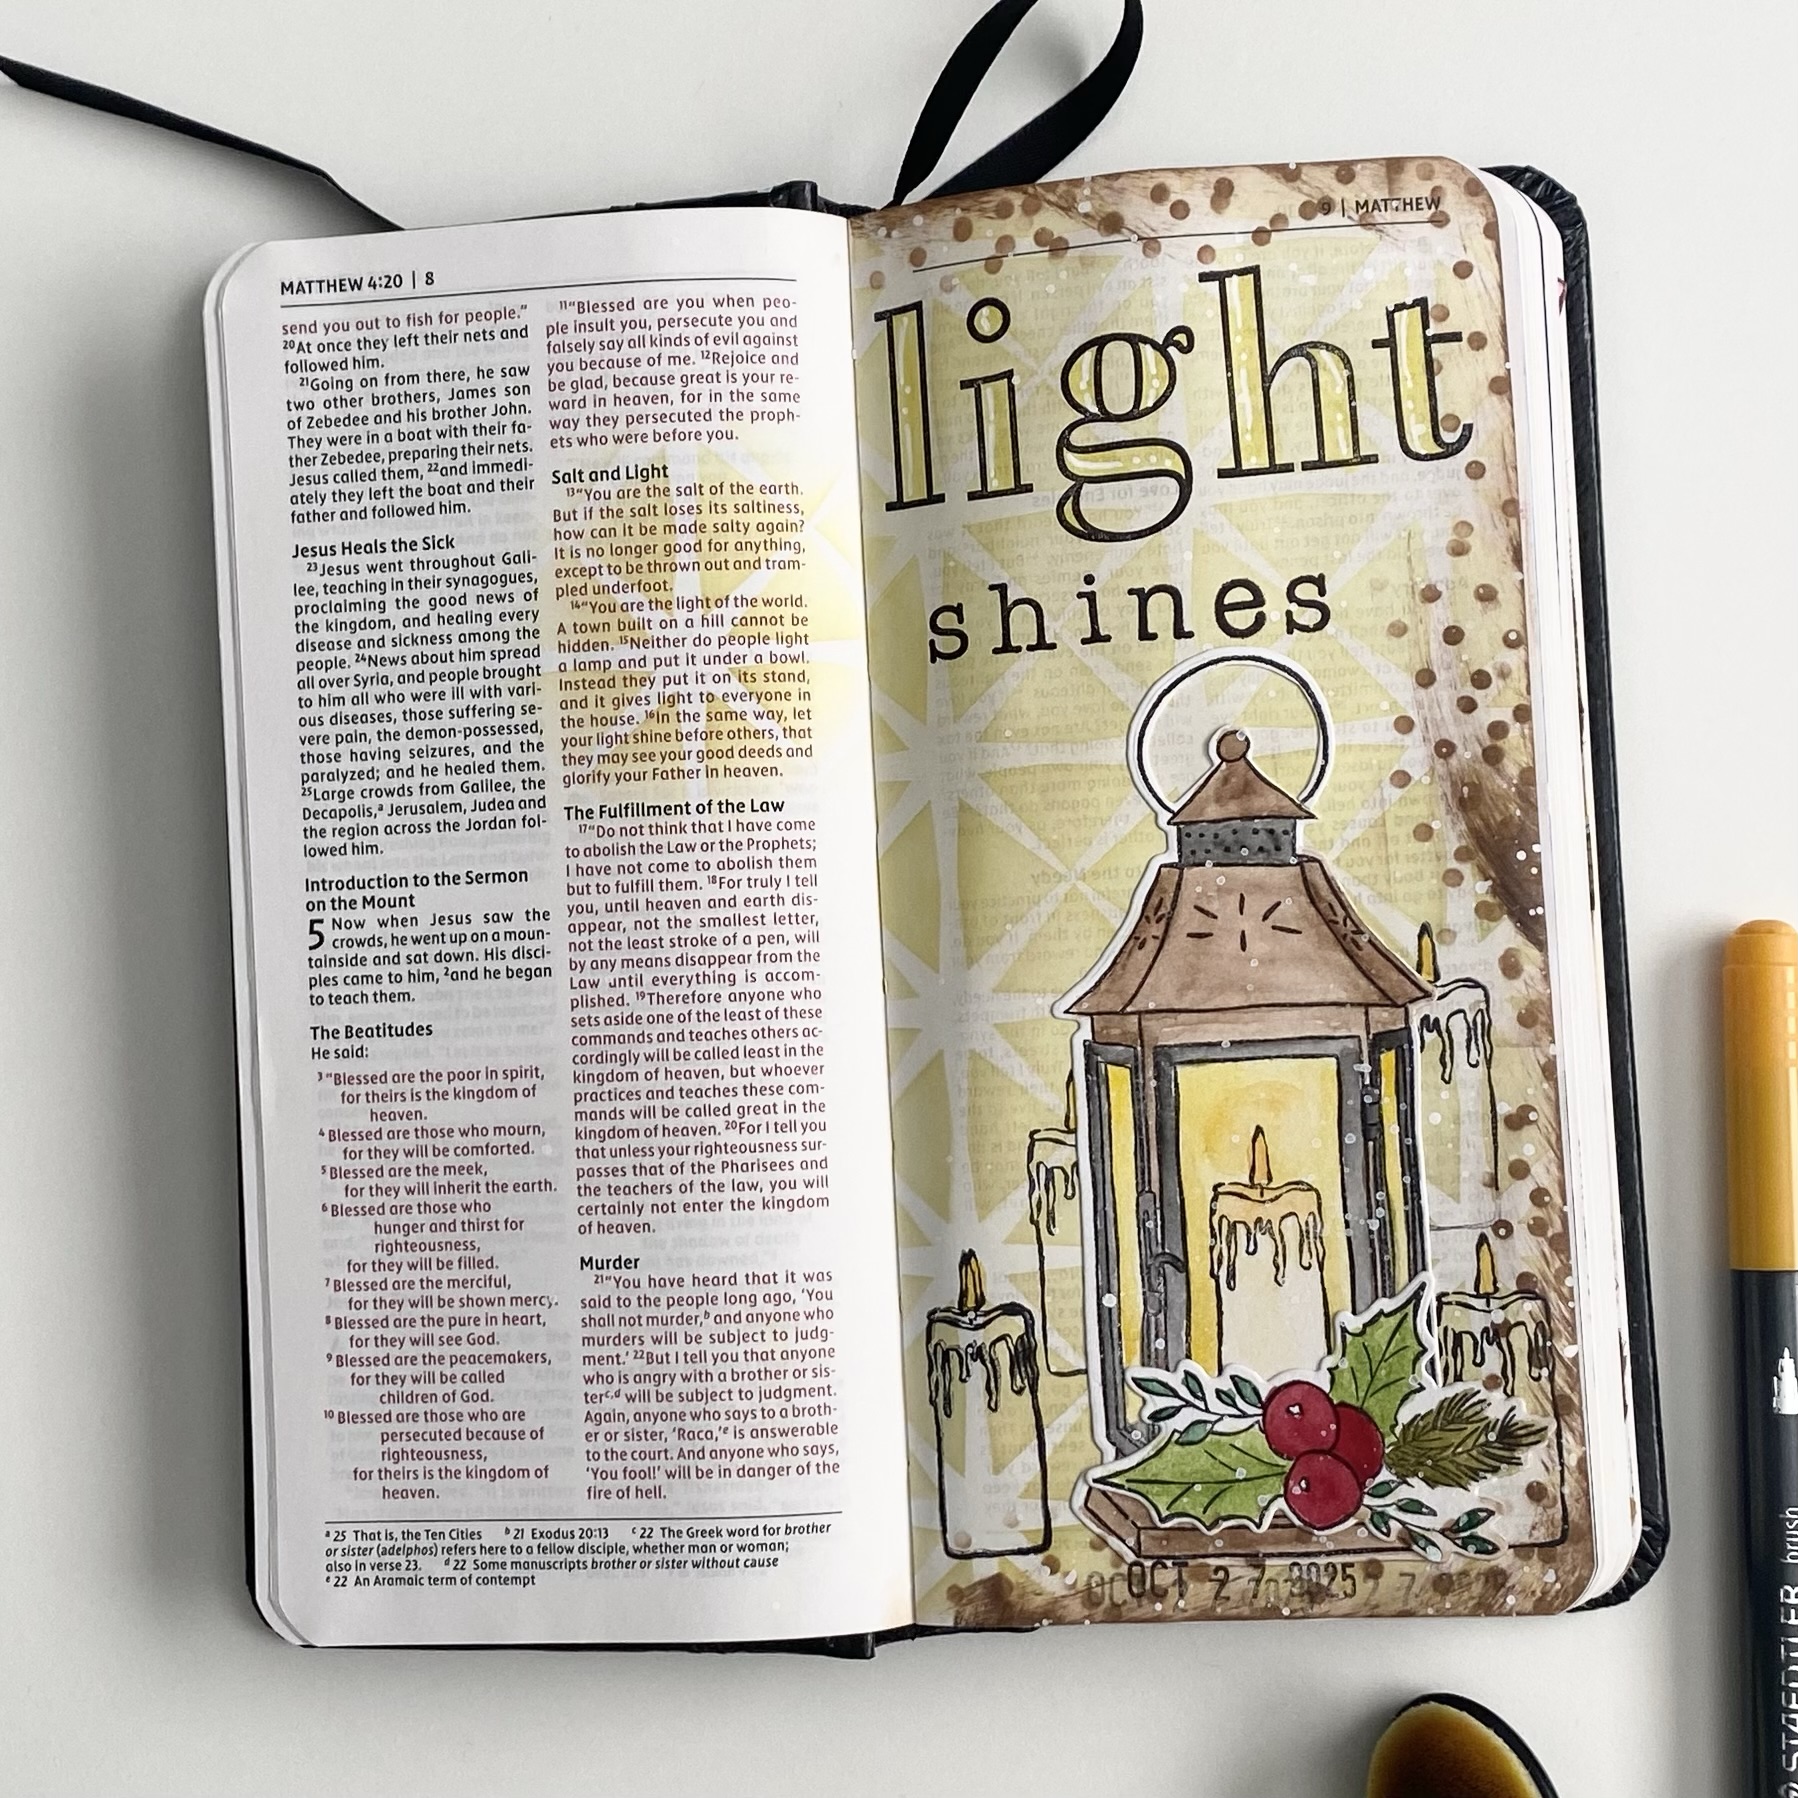 MATTHEW 4:20 | 8
send you out to fish for people."
20At once they left their nets and
followed him.
21Going on from there, he saw
two other brothers, James son
of Zebedee and his brother John.
They were in a boat with their fa-
ther Zebedee, preparing their nets.
Jesus called them, 22and immedi-
ately they left the boat and their
father and followed him.
Jesus Heals the Sick
23Jesus went throughout Gali-
lee, teaching in their synagogues,
proclaiming the good news of
the kingdom, and healing every
disease and sickness among the
people. 24News about him spread
all over Syria, and people brought
to him all who were ill with vari-
ous diseases, those suffering se-
vere pain, the demon-possessed,
those having seizures, and the
paralyzed; and he healed them.
25Large crowds from Galilee, the
Decapolis,a Jerusalem, Judea and
the region across the Jordan fol-
lowed him.
Introduction to the Sermon
on the Mount
5 Now when Jesus saw the
crowds, he went up on a moun-
tainside and sat down. His disci-
ples came to him, 2and he began
to teach them.
The Beatitudes
He said:
3"Blessed are the poor in spirit,
for theirs is the kingdom of
heaven.
4Blessed are those who mourn,
for they will be comforted.
5Blessed are the meek,
for they will inherit the earth.
6Blessed are those who
hunger and thirst for
righteousness,
for they will be filled.
7Blessed are the merciful,
for they will be shown mercy.
8Blessed are the pure in heart,
for they will see God.
9Blessed are the peacemakers,
for they will be called
children of God.
10Blessed are those who are
persecuted because of
righteousness,
for theirs is the kingdom of
heaven.
11"Blessed are you when peo-
ple insult you, persecute you and
falsely say all kinds of evil against
you because of me. 12Rejoice and
be glad, because great is your re-
ward in heaven, for in the same
way they persecuted the proph-
ets who were before you.
Salt and Light
13"You are the salt of the earth.
But if the salt loses its saltiness,
how can it be made salty again?
It is no longer good for anything,
except to be thrown out and tram-
pled underfoot.
14"You are the light of the world.
A town built on a hill cannot be
hidden. 15Neither do people light
a lamp and put it under a bowl.
Instead they put it on its stand,
and it gives light to everyone in
the house. 16In the same way, let
your light shine before others, that
they may see your good deeds and
glorify your Father in heaven.
The Fulfillment of the Law
17"Do not think that I have come
to abolish the Law or the Prophets;
I have not come to abolish them
but to fulfill them. 18For truly I tell
you, until heaven and earth dis-
appear, not the smallest letter,
not the least stroke of a pen, will
by any means disappear from the
Law until everything is accom-
plished. 19Therefore anyone who
sets aside one of the least of these
commands and teaches others ac-
cordingly will be called least in the
kingdom of heaven, but whoever
practices and teaches these com-
mands will be called great in the
kingdom of heaven. 20For I tell you
that unless your righteousness sur-
passes that of the Pharisees and
the teachers of the law, you will
certainly not enter the kingdom
of heaven.
Murder
21"You have heard that it was
said to the people long ago, 'You
shall not murder,b and anyone who
murders will be subject to judg-
ment.' 22But I tell you that anyone
who is angry with a brother or sis-
terc,d will be subject to judgment.
Again, anyone who says to a broth-
er or sister, 'Raca,'e is answerable
to the court. And anyone who says,
'You fool!' will be in danger of the
fire of hell.
a 25 That is, the Ten Cities b 21 Exodus 20:13 c 22 The Greek word for brother
or sister (adelphos) refers here to a fellow disciple, whether man or woman;
also in verse 23. d 22 Some manuscripts brother or sister without cause
e 22 An Aramaic term of contempt
9 | MATTHEW
light
shines
OCT 27 2025
STAEDTLER brush